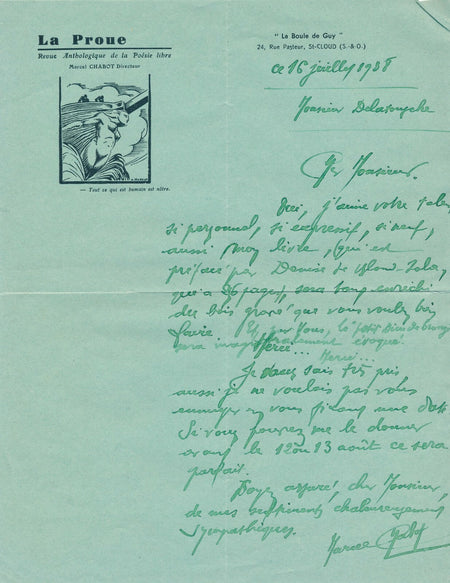 La Proue
Revue Anthologique de la Poésie libre
Marcel CHABOT Directeur
— Tout ce qui est humain est nôtre.
"Le Boule de Guy"
24, Rue Pasteur, St-CLOUD (S.-&-O.)
ce 16 juillet 1938
Monsieur Delatousche
Monsieur.
Oui, j'aime votre talent
si personnel, si expressif, si neuf,
aussi mon livre, qui est
préfacé par Denise
pages, sera enrichi
du bois gravé que vous voulez bien
faire. Et par vous, le petit
sera évoqué.
Merci... Merci...
Je sais très pris
aussi je ne voulais pas vous
ennuyer en vous fixant une date
Si vous pouvez me le donner
avant le 12 ou 13 août ce sera
parfait.
Soyez assuré, cher Monsieur,
de mes sentiments chaleureusement
sympathiques.
Marcel Chabot